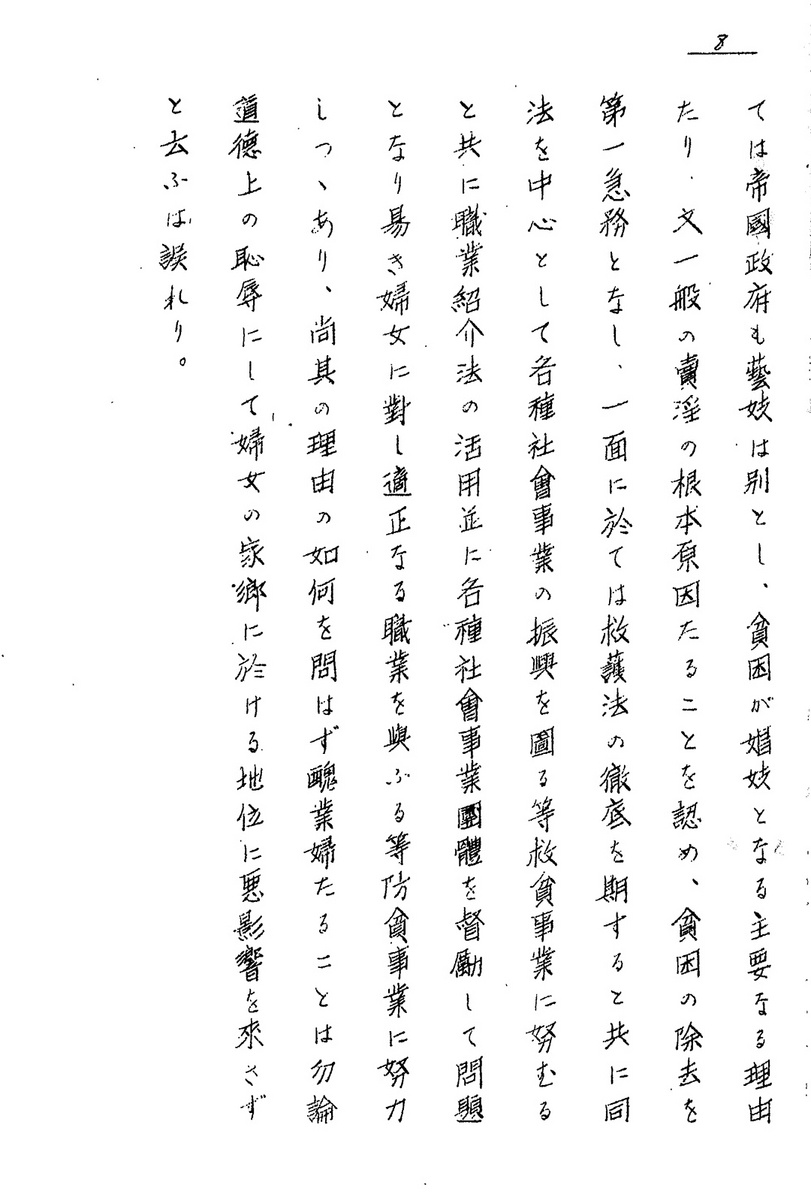 8
ては帝國政府も藝妓は別とし、貧困が娼妓となる主要なる理由
たり、又一般の賣淫の根本原因たることを認め、貧困の除去を
第一急務となし、一面に於ては救護法の徹底を期すると共に同
法を中心として各種社會事業の振興を圖る等救貧事業に努むる
と共に職業紹介法の活用並に各種社會事業團體を督勵して問題
となり易き婦女に對し適正なる職業を與ふる等防貧事業に努力
しつヽあり、尚其の理由の如何を問はず醜業婦たることは勿論
道德上の恥辱にして婦女の家鄉に於ける地位に悪影響を來さず
と云ふは誤れり。